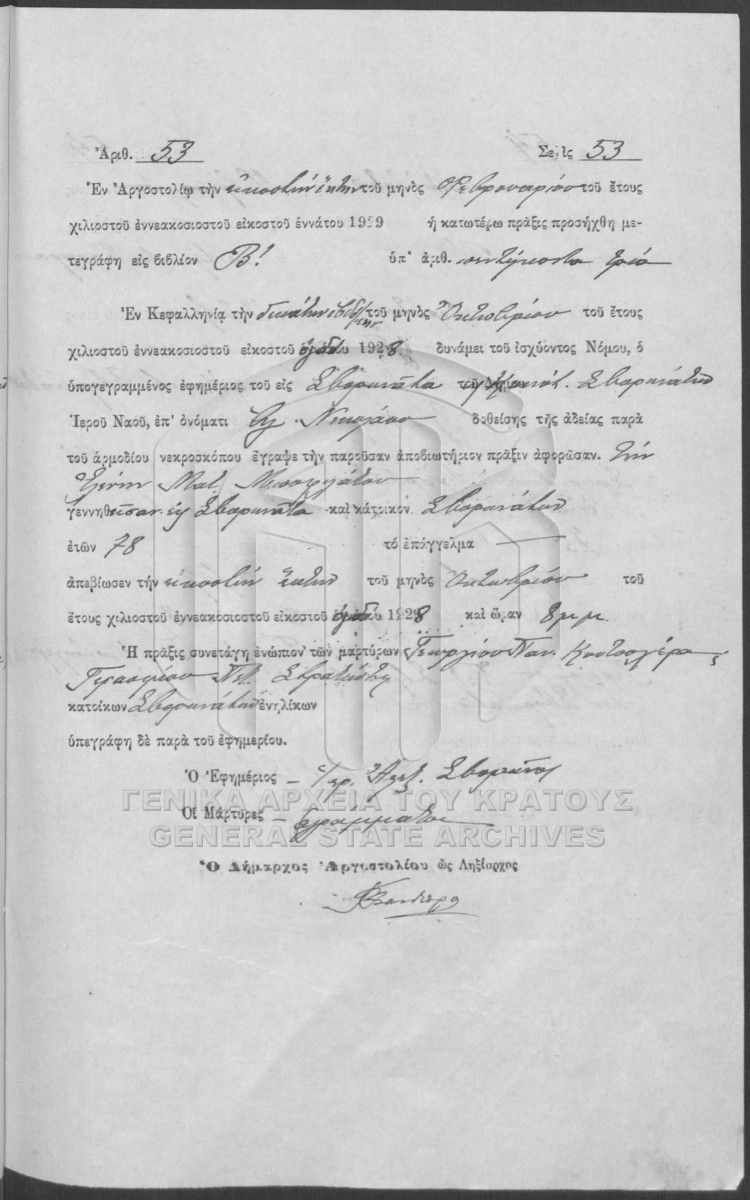 Ἀριθ. 53 Σελὶς 53
Ἐν Ἀργοστολίῳ τὴν εἰκοστὴν ἕκτην τοῦ μηνὸς Φεβρουαρίου τοῦ ἔτους
χιλιοστοῦ ἐννεακοσιοστοῦ εἰκοστοῦ ἐννάτου 1929 ἡ κατωτέρω πρᾶξις προσήχθη με-
τεγράφη εἰς βιβλίον Β! ὑπ' ἀριθ. πεντήκοντα τρία
Ἐν Κεφαλληνίᾳ τὴν δεκάτην ἑβδόμην τοῦ μηνὸς Ὀκτωβρίου τοῦ ἔτους
χιλιοστοῦ ἐννεακοσιοστοῦ εἰκοστοῦ ὀγδόου 1928 δυνάμει τοῦ ἰσχύοντος Νόμου, ὁ
ὑπογεγραμμένος ἐφημέριος τοῦ εἰς Σβορωνᾶτα τῆς Κοινότ. Σβορωνάτων
Ἱεροῦ Ναοῦ, ἐπ' ὀνόματι Ἁγ. Νικολάου δοθείσης τῆς ἀδείας παρὰ
τοῦ ἁρμοδίου νεκροσκόπου ἔγραψε τὴν παροῦσαν ἀποβιωτήριον πρᾶξιν ἀφορῶσαν. τὴν
Ἑλένην Ματ.
γεννηθεῖσαν εἰς Σβορωνᾶτα καὶ κάτοικον Σβορωνάτων
ἐτῶν 78 τὸ ἐπάγγελμα —
ἀπεβίωσεν τὴν εἰκοστὴν ἕκτην τοῦ μηνὸς Ὀκτωβρίου τοῦ
ἔτους χιλιοστοῦ ἐννεακοσιοστοῦ εἰκοστοῦ ὀγδόου 1928 καὶ ὥραν 8 μ.μ.
Ἡ πρᾶξις συνετάγη ἐνώπιον τῶν μαρτύρων Γεωργίου Παν.
Γερασίμου
κατοίκων Σβορωνάτων ἐνηλίκων
ὑπεγράφη δὲ παρὰ τοῦ ἐφημερίου.
Ὁ Ἐφημέριος – Ἱερ. Ἀλεξ. Σβορῶνος
ΓΕΝΙΚΑ ΑΡΧΕΙΑ ΤΟΥ ΚΡΑΤΟΥΣ
Οἱ Μάρτυρες – ἀγράμματοι
GENERAL STATE ARCHIVES
Ὁ Δήμαρχος Ἀργοστολίου ὡς Ληξίαρχος